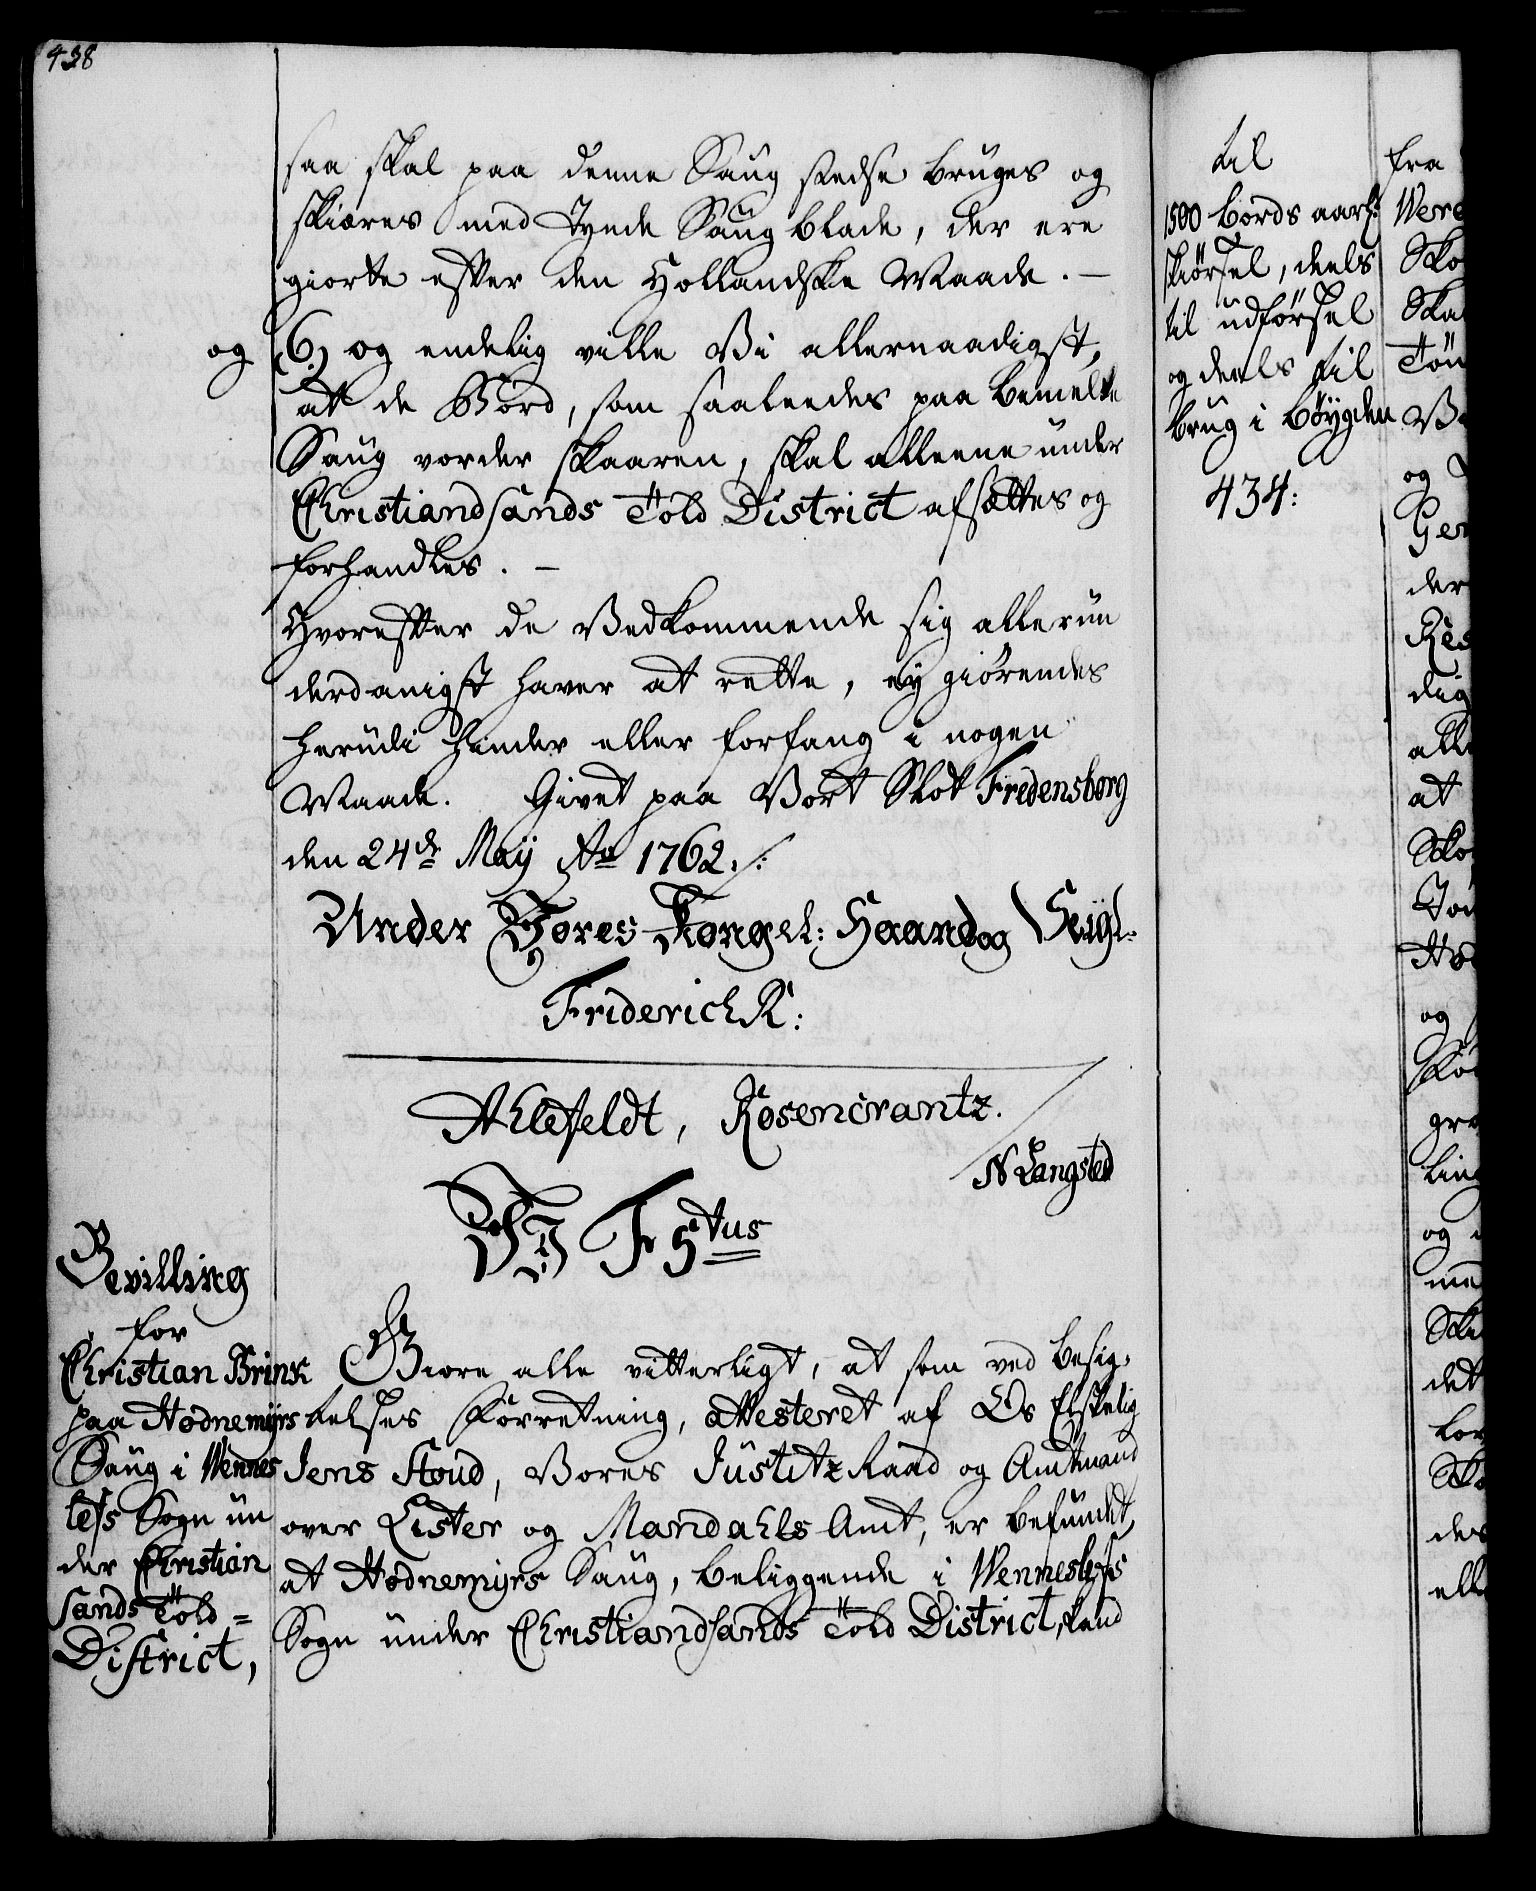 438
saa skal paa denne Saug stedse bruges og
skiæres med tynde Saug blade, der ere
giorte efter den Hollandske Maade. –
og
6.) og endelig ville Vi allernaadigst,
at de Bord, som saaleedes paa bemelte
Saug vorder skaaren, skal alleene under
Christiandsands Told District afsættes og
forhandles. –
Hvorefter de Vedkommende sig allerun
derdanigst haver at rette, eÿ giörendes
herudi hinder eller forfang i nogen
Maade. Givet paa Vort Slot Fredensborg
den 24de Maÿ Ao 1762. ./.
Under Vores Kongel: Haand og Seigl.
Friderich R:
Ahlefeldt, Rosencrantz.
N Langsted
VJ F 5tus
Bevilling
for
Christian Brink
paa Hodnemÿrs
Saug i Wennes
lefs Sogn un
der Christian
sands Told =
District,
Giore alle vitterligt, at som ved besig,
telses Forretning, attesteret af Os Elskelig
Jens Stoud, Vores Justitz Raad og Amtmand
over Lister og Mandahls Amt, er befundet,
at Hodnemÿrs Saug, beliggende i Wenneslefs
Sogn under Christiandsands Told District, kand
til
1500 bords aarl:
skiörsel, deels
til udförsel
og deels til
brug i böÿgden
434:
fra
Were
Sko
Ska
Tön
Ve
og
Gen
der
Res
dig
alle
at
Sko
og
gra
ling
og
me
Ski
det
Sko
des
elle